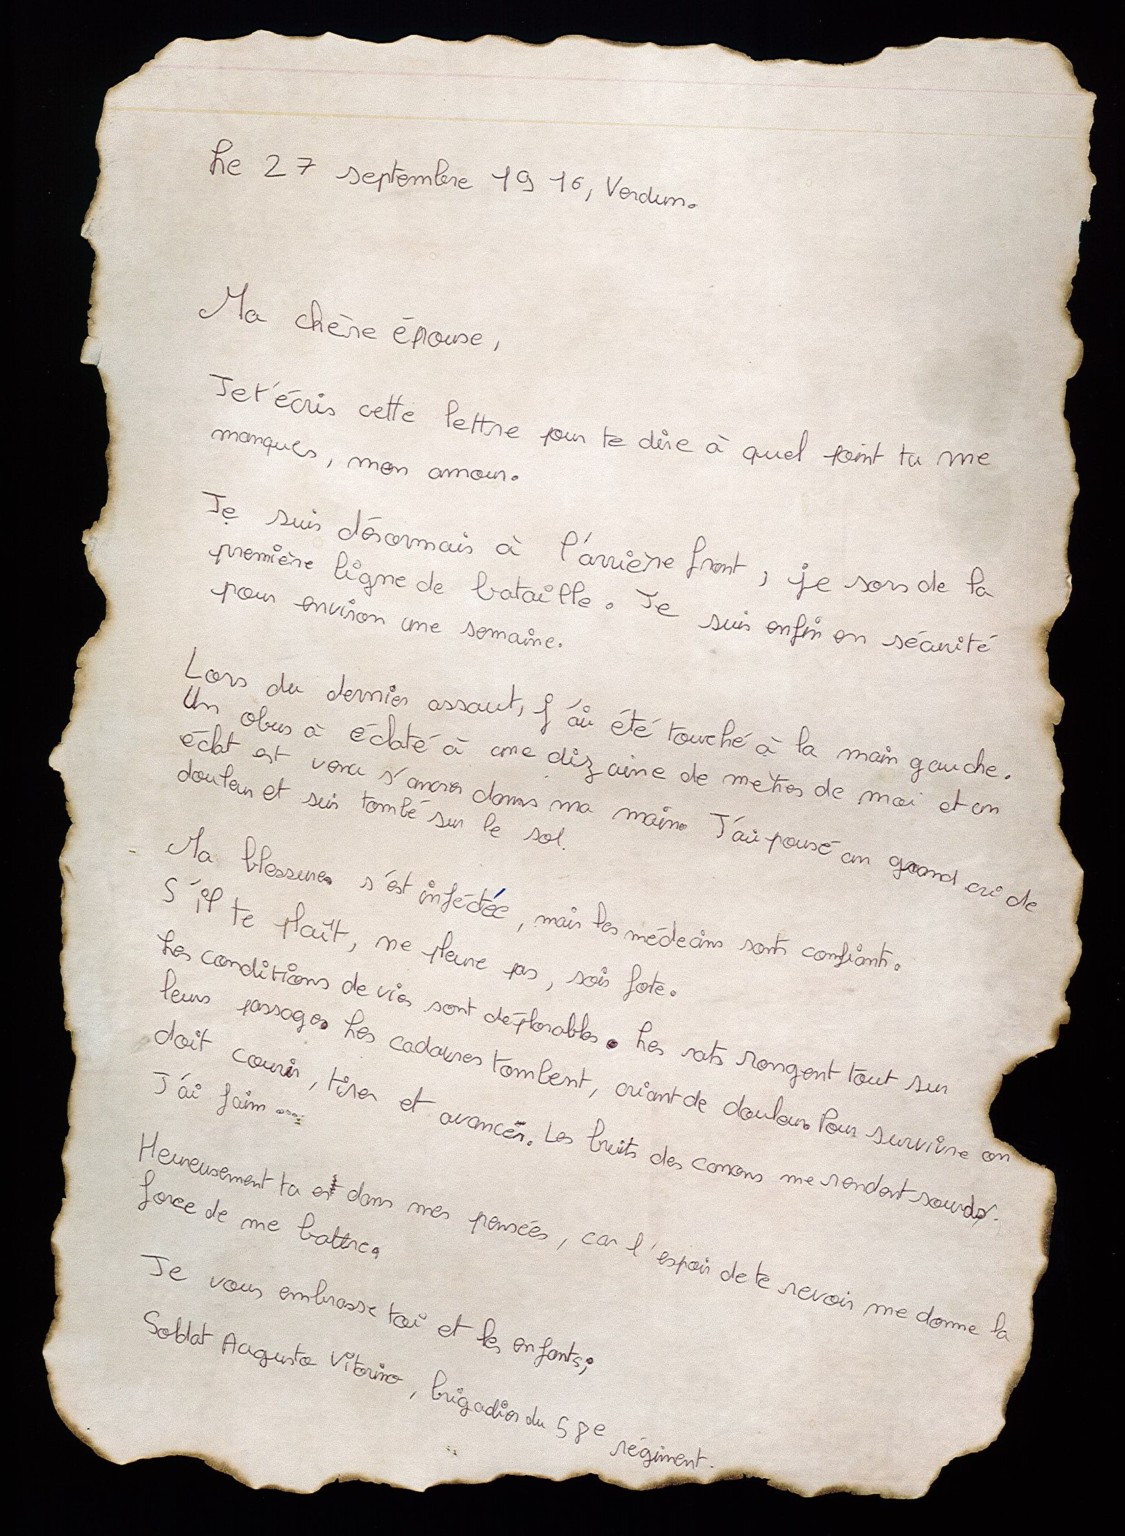 Le 27 septembre 1916, Verdun.
Ma chère épouse,
Je t'écris cette lettre pour te dire à quel point tu me
manques, mon amour.
Je suis désormais à l'arrière front, je sors de la
première ligne de bataille. Je suis enfin en sécurité
pour environ une semaine.
Lors du dernier assaut, j'ai été touché à la main gauche.
Un obus à éclaté à une dizaine de metres de moi et un
éclat est venu s'ancrer dans ma main. J'ai poussé un grand cri de
douleur et suis tombé sur le sol.
Ma blessure s'est inféctée, mais les médecins sont confiants.
S'il te plaît, ne pleure pas, sois forte.
Les conditions de vie sont déplorables. Les rats rongent tout sur
leurs passage. Les cadavres tombent, criant de douleur. Pour survivre on
doit courir, tirer et avancer. Les bruits des canons me rendent sourds.
J'ai faim ....
Heureusement tu est dans mes pensées, car l'espoir de te revoir me donne la
force de me battre.
Je vous embrasse toi et les enfants;
Soldat Augusto Vitorino, brigadier du 58e régiment.